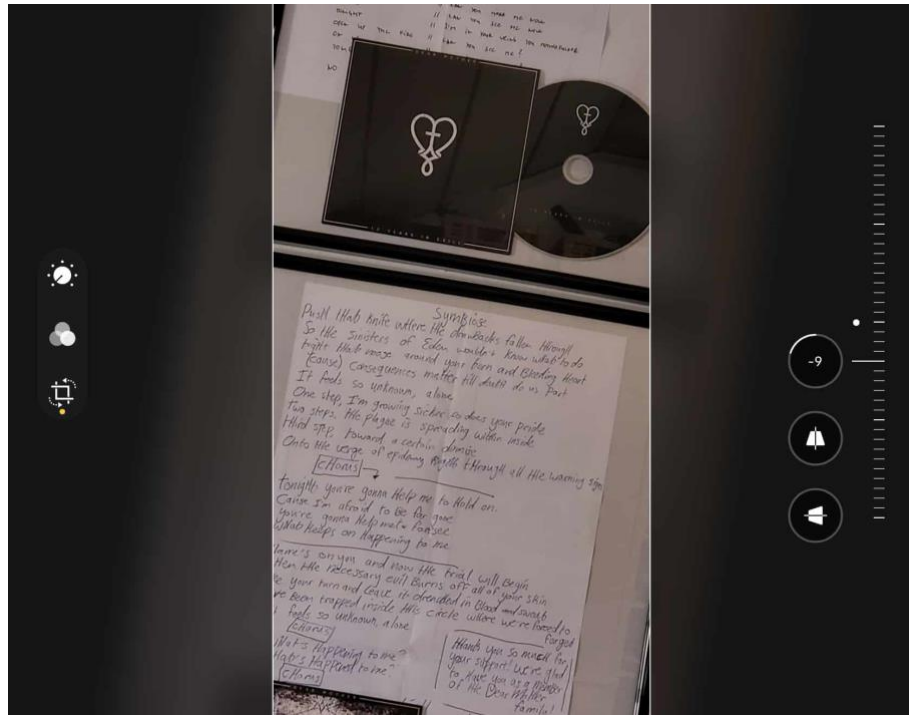 TONIGHT // CAN YOU SEE ME NOW
// I'M IN YOUR VEINS
// CAN YOU SEE ME?
DEAR MOTHER
12 YEARS IN EXILE
12 YEARS IN EXILE
Symbiose
Push that knife where the drawbacks fallen through
So the Sinsters of Eden wouldn't know what to do
tight that noose around your turn and Bleeding Heart
(cause) Consequences matter till death do us part
It feels so unknown, alone
One step, I'm growing sicker so does your pride
Two steps, the plague is spreading within inside
third step, toward a certain demise
Onto the verge of epidemy through all the warning signs
CHORUS
tonight you're gonna Help me to Hold on
Cause I'm afraid to be far gone
you're gonna Help me to foresee
What keeps on Happening to me
lame's on you and now the trial will Begin
the necessary evil Burns off all of your skin
your turn and leave it drenched in Blood and sweat
ve Been trapped inside the circle where we're forced to
forged
feels so unknown, alone
CHORUS
What's Happening to me?
What's Happened to me?
CHORUS
tHank you so much for
your support! We're glad
to Have you as a member
of the Dear Mother
family!
DEAR MOTHER
-9